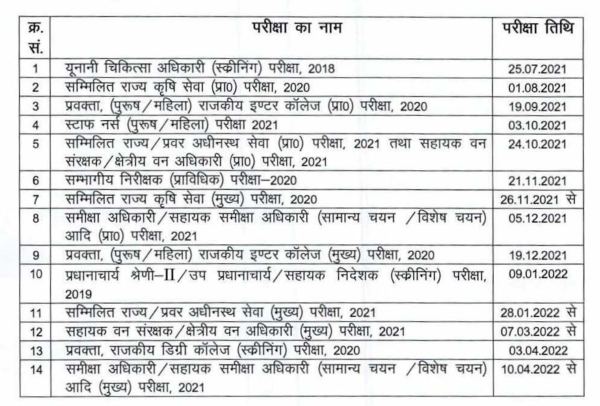 क्र. सं. परीक्षा का नाम परीक्षा तिथि
1 यूनानी चिकित्सा अधिकारी (स्क्रीनिंग) परीक्षा, 2018 25.07.2021
2 सम्मिलित राज्य कृषि सेवा (प्रा0) परीक्षा, 2020 01.08.2021
3 प्रवक्ता, (पुरूष/महिला) राजकीय इण्टर कॉलेज (प्रा0) परीक्षा, 2020 19.09.2021
4 स्टाफ नर्स (पुरूष/महिला) परीक्षा 2021 03.10.2021
5 सम्मिलित राज्य/प्रवर अधीनस्थ सेवा (प्रा0) परीक्षा, 2021 तथा सहायक वन 24.10.2021
संरक्षक/क्षेत्रीय वन अधिकारी (प्रा0) परीक्षा, 2021
6 सम्भागीय निरीक्षक (प्राविधिक) परीक्षा–2020 21.11.2021
7 सम्मिलित राज्य कृषि सेवा (मुख्य) परीक्षा, 2020 26.11.2021 से
8 समीक्षा अधिकारी/सहायक समीक्षा अधिकारी (सामान्य चयन /विशेष चयन) 05.12.2021
आदि (प्रा0) परीक्षा, 2021
9 प्रवक्ता, (पुरूष/महिला) राजकीय इण्टर कॉलेज (मुख्य) परीक्षा, 2020 19.12.2021
10 प्रधानाचार्य श्रेणी-II/उप प्रधानाचार्य/सहायक निदेशक (स्क्रीनिंग) परीक्षा, 09.01.2022
2019
11 सम्मिलित राज्य/प्रवर अधीनस्थ सेवा (मुख्य) परीक्षा, 2021 28.01.2022 से
12 सहायक वन संरक्षक/क्षेत्रीय वन अधिकारी (मुख्य) परीक्षा, 2021 07.03.2022 से
13 प्रवक्ता, राजकीय डिग्री कॉलेज (स्क्रीनिंग) परीक्षा, 2020 03.04.2022
14 समीक्षा अधिकारी/सहायक समीक्षा अधिकारी (सामान्य चयन /विशेष चयन) 10.04.2022 से
आदि (मुख्य) परीक्षा, 2021